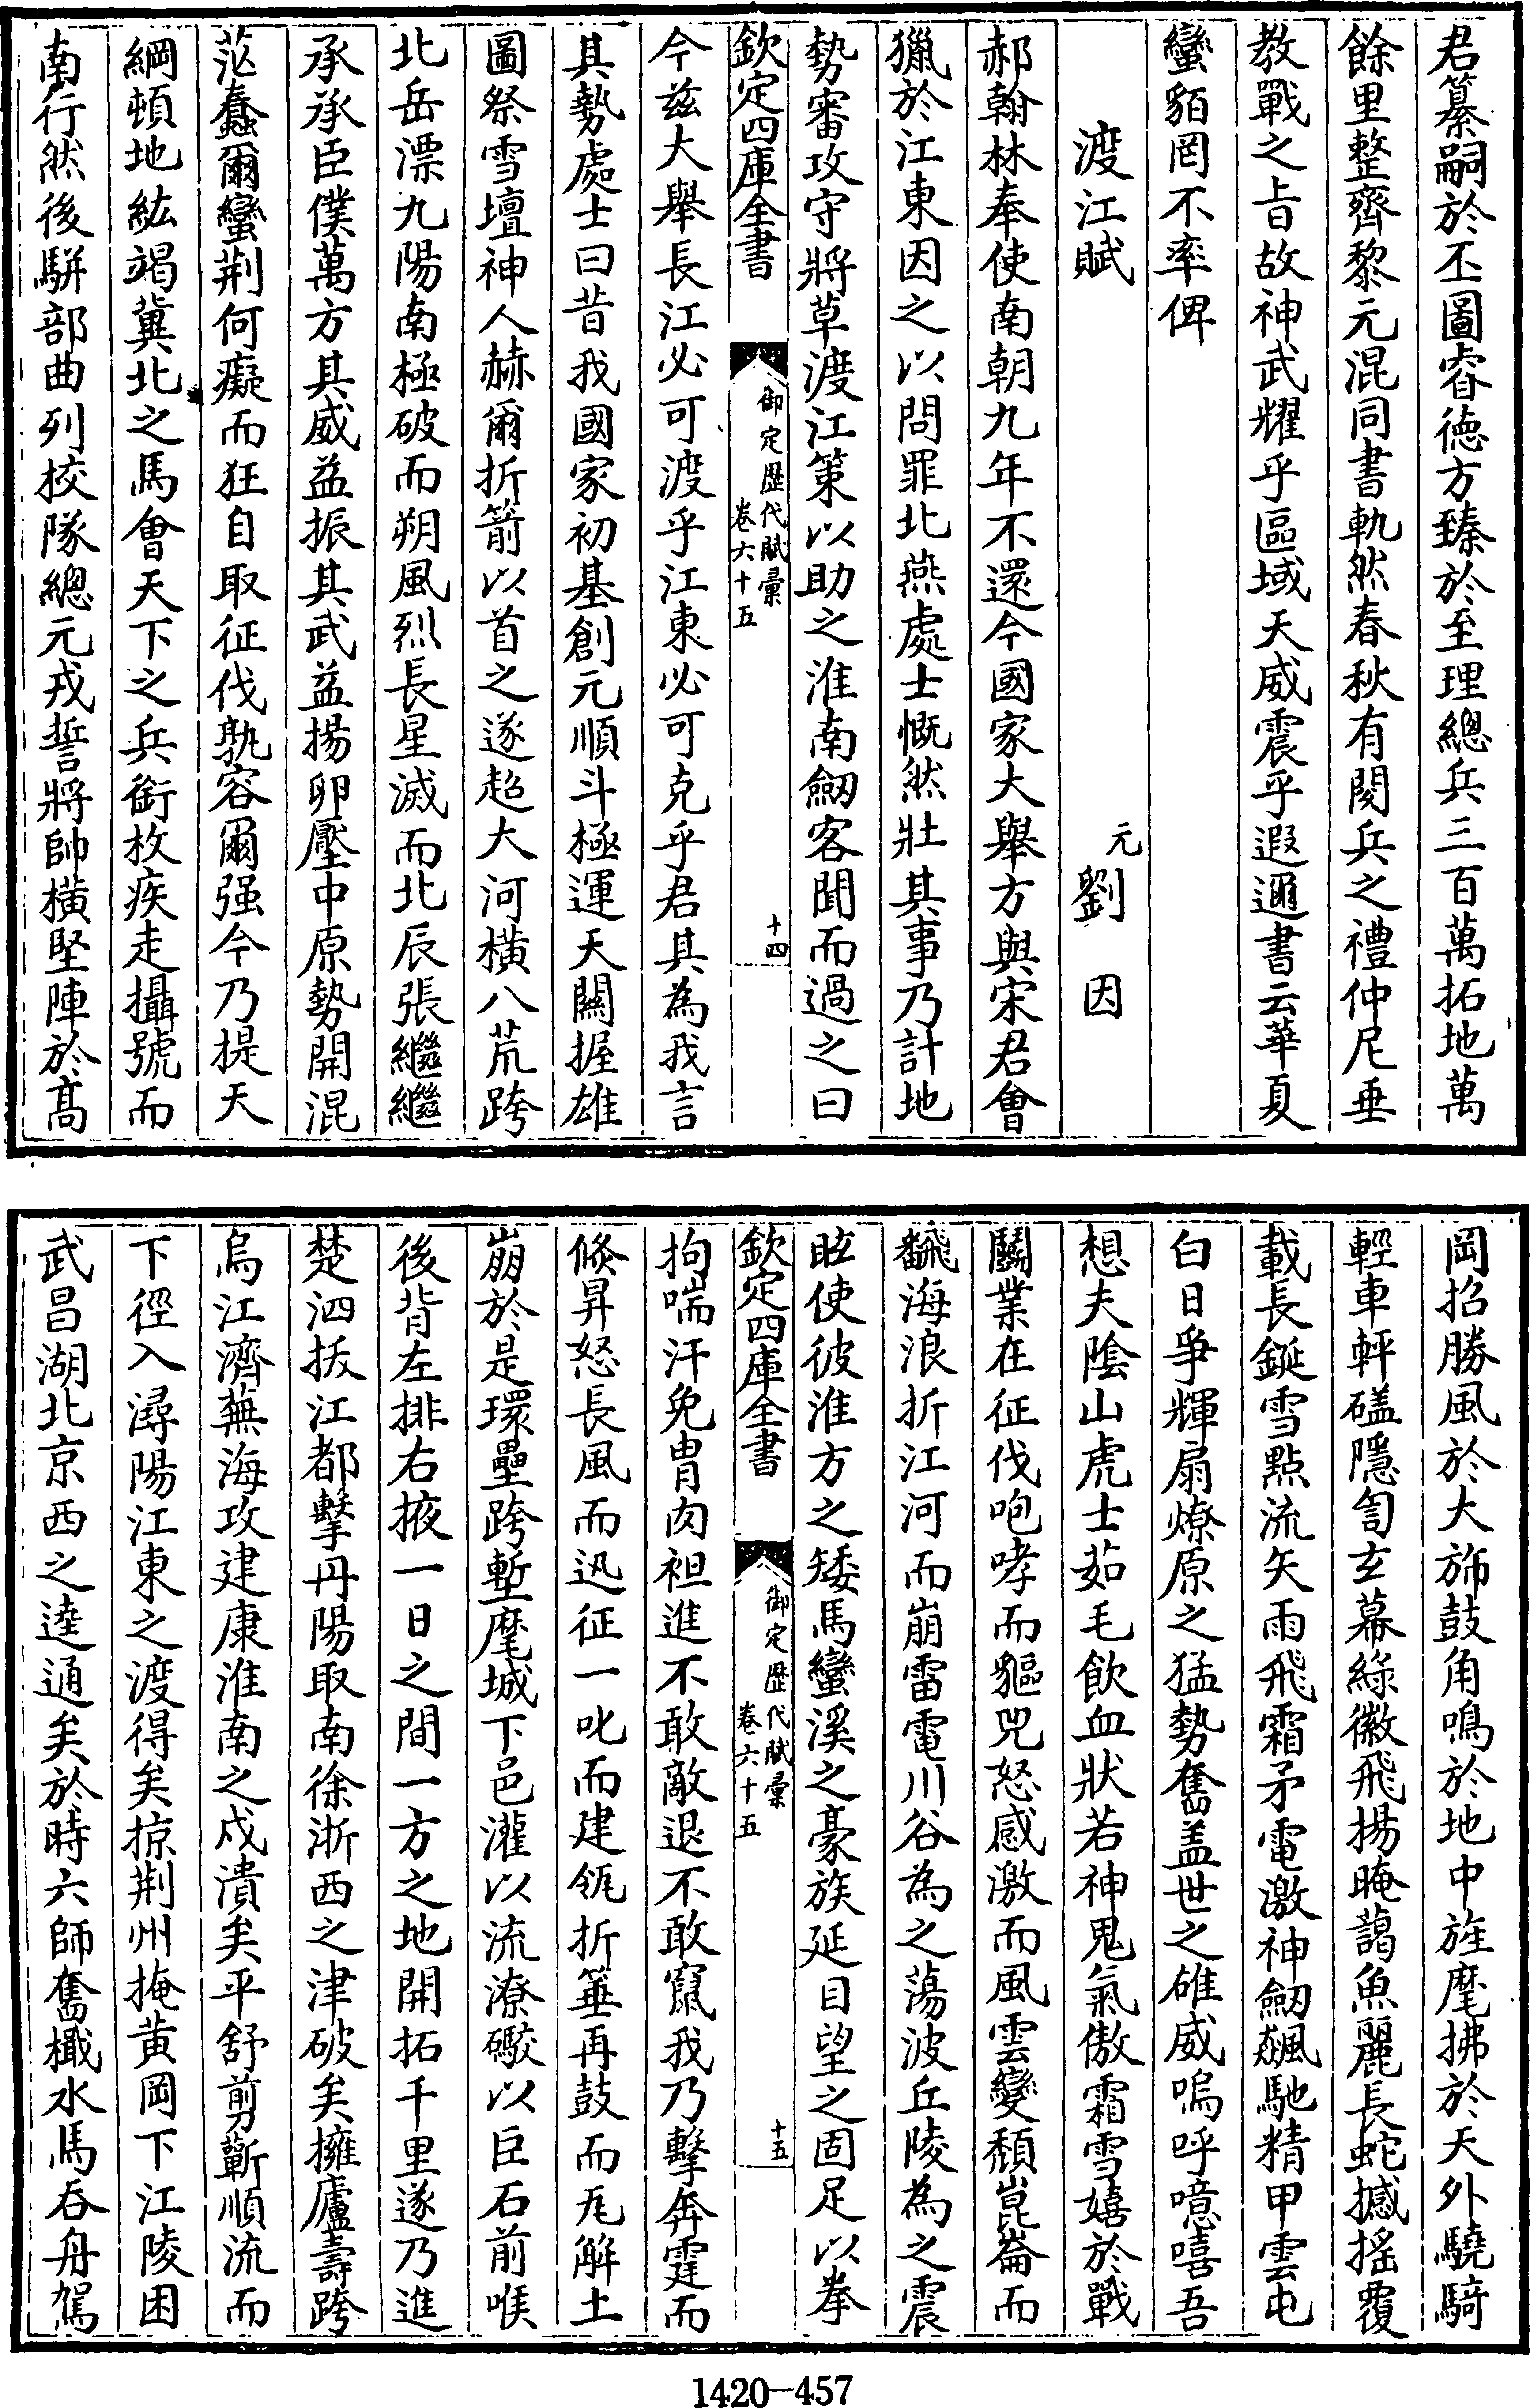 君纂嗣於丕圖睿德方臻於至理總兵三百萬拓地萬
餘里整齊黎元混同書軌然春秋有閱兵之禮仲尼垂
教戰之旨故神武耀乎區域天威震乎遐邇書云華夏
蠻貊罔不率俾
渡江賦
元劉因
郝翰林奉使南朝九年不還今國家大舉方與宋君會
獵於江東因之以問罪北燕處士慨然壯其事乃計地
勢審攻守將草渡江策以助之淮南劒客聞而過之曰
欽定四庫全書
御定歴代賦彙
卷六十五
十四
今茲大舉長江必可渡乎江東必可克乎君其為我言
其勢處士曰昔我國家初基創元順斗極運天關握雄
圖祭雪壇神人赫爾折箭以首之遂超大河橫八荒跨
北岳漂九陽南極破而朔風烈長星滅而北辰張繼繼
承承臣僕萬方其威益振其武益揚卵壓中原勢開混
茫蠢爾蠻荆何癡而狂自取征伐孰容爾强今乃提天
綱頓地紘竭冀北之馬會天下之兵銜枚疾走攝號而
南行然後駢部曲列校隊總元戎誓將帥橫堅陣於髙
岡招勝風於大斾鼓角鳴於地中旌麾拂於天外驍騎
輕車軯礚隱訇玄幕綠徽飛揚晻藹魚麗長蛇撼搖覆
載長鋋雪點流矢雨飛霜矛電激神劒飇馳精甲雲屯
白日爭輝扇燎原之猛勢奮盖世之雄威嗚呼噫嘻吾
想夫陰山虎士茹毛飲血狀若神鬼氣傲霜雪嬉於戰
鬭業在征伐咆哮而貙兕怒感激而風雲變頽崑崙而
飜海浪折江河而崩雷電川谷為之蕩波丘陵為之震
眩使彼淮方之矮馬蠻溪之豪族延目望之固足以拳
欽定四庫全書
御定歴代賦彙
卷六十五
十五
拘喘汗免胄肉袒進不敢敵退不敢竄我乃擊奔霆而
倐昇怒長風而迅征一叱而建瓴折箠再鼓而瓦解土
崩於是環壘跨塹麾城下邑灌以流潦礮以巨石前喉
後背左排右掖一日之間一方之地開拓千里遂乃進
楚泗拔江都擊丹陽取南徐浙西之津破矣擁廬壽跨
烏江濟蕪海攻建康淮南之戍潰矣平舒剪蘄順流而
下徑入潯陽江東之渡得矣掠荆州掩黄岡下江陵困
武昌湖北京西之逵通矣於時六師奮檝水馬吞舟駕
1420—457